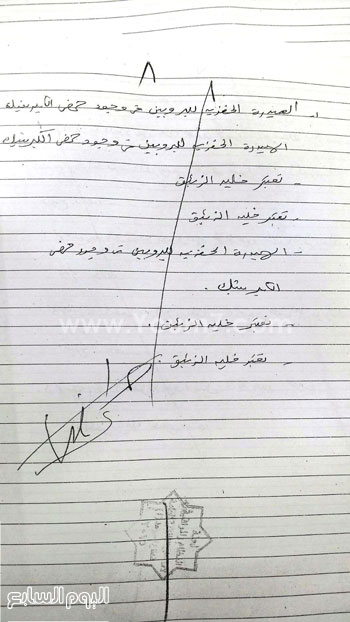 ٨
- الهيدرة الحفزية للبروبين فى وجود حمض الكبريتيك
الهيدرة الحفزية للبروبين فى وجود حمض الكبريتيك
- تعتبر خلية الزئبق
- تعتبر خلية الزئبق
- الهيدرة الحفزية للبروبين فى وجود حمض
الكبريتيك .
- تعتبر خلية الزئبق .
- تعتبر خلية الزئبق .
اليوم السابع